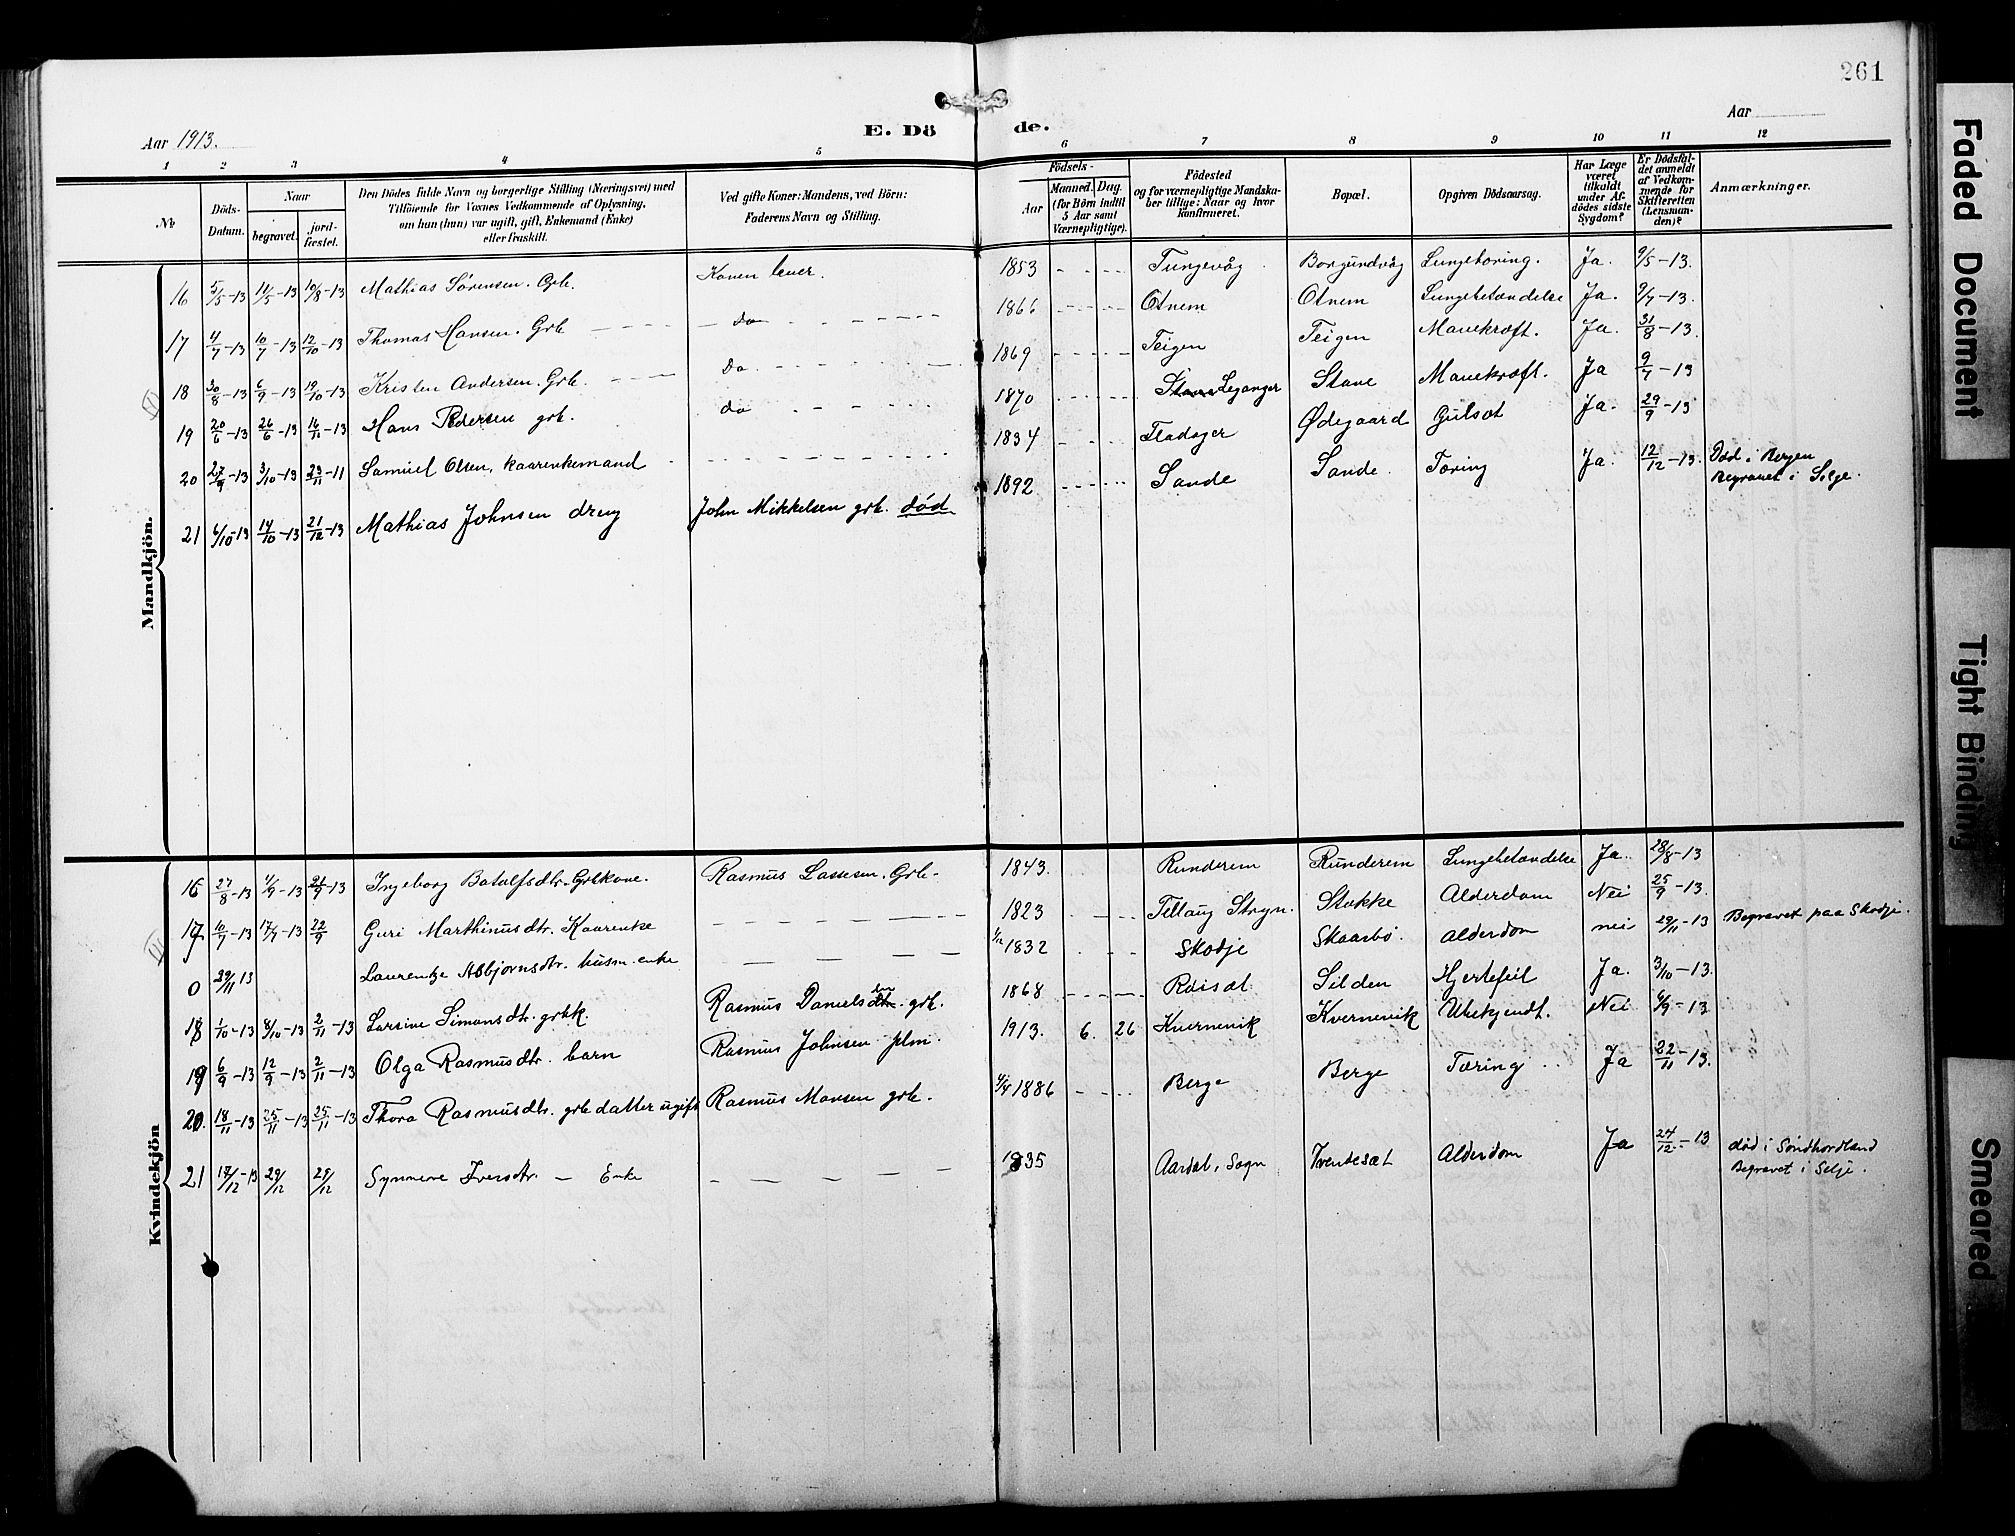 261
Aar 1913.
E. Dö
de.
Aar
1 2 3 4 5 6 7 8 9 10 11 12
№
Döds-Datum.
Naar
begravet.
jord-fæstet.
Den Dödes fulde Navn og borgerlige Stilling (Næringsvei) med
Tilföiende for Voxnes Vedkommende af Oplysning,
om hun (hun) var ugift, gift, Enkemand (Enke)
eller fraskilt.
Ved gifte Koner: Mandens, ved Börn:
Faderens Navn og Stilling.
Födsels-
Aar
Maaned. Dag.
(for Börn indtil
5 Aar samt
Værnepligtige).
Födested
og for værnepligtige Mandska-
ber tillige: Naar og hvor
konfirmeret.
Bopæl.
Opgiven Dödsaarsag.
Har Læge
været
tilkaldt
under Af-
dödes sidste
Sygdom?
Er Dödsfal-
det anmeldt
af Vedkom-
mende for
Skifteretten
(Lensman-
den)?
Anmærkninger.
Mandkjön.
16 5/5-13 11/5-13 10/8-13 Mathias Sørensen. Grb. Konen lever. 1853 Tungevåg Borgundvåg Lungetæring. Ja. 9/5-13.
17 4/7-13 10/7-13 12/10-13 Thomas Hansen. Grb Do 1866 Otnem Otnem Lungebetændelse Ja. 9/7-13.
18 30/8-13 6/9-13 19/10-13 Kristen Andersen. Grb. Do 1869 Teigen Teigen Mavekræft. Ja. 31/8-13.
19 20/6-13 26/6-13 16/11-13 Hans Pedersen grb. do 1870 Stave Leganger Stave Mavekræft. Ja 9/7-13
20 27/9-13 3/10-13 23/11-11 Samuel Olsen, kaarenkemand 1834 Fladøger Ødegaard Gulsot Ja. 29/9-13
21 6/10-13 14/10-13 21/12-13 Mathias Johnsen dreng John Mikkelsen grb. død 1892 Sande Sande. Tæring Ja. 12/12-13. Død i Bergen
Begravet i Selje.
Kvindekjön
16 27/8-13 4/9-13 21/9-13 Ingeborg Botulfsdtr. Grbkone. Rasmus Lassesen. Grb. 1843. Runderem Runderem Lungebetændelse Ja. 28/8-13
17 10/7-13 17/7-13 22/9 Guri Marthinusdtr. Kaarenke 1823 Tillaug Stryn. Stokke Alderdom Nei 25/9-13.
0 22/11 13 Laurentze Asbjornsdtr. husm. enke 1/12 1832 Skodje Skaarbø. Alderdom nei 29/11-13 Begravet paa Skodje.
18 1/10-13 8/10-13 2/11-13 Larsine Simonsdtr. grbk. Rasmus Danielsdtr. sen grb. 1868 Røisæt Silden Hjertefeil Ja. 3/10-13.
19 6/9-13 12/9-13 2/11-13 Olga Rasmusdtr. barn Rasmus Johnsen plm. 1913. 6. 26 Kvernevik Kvernevik Ubekjendt. Nei 6/9-13
20. 18/11-13 25/11-13 25/11-13 Thora Rasmusdtr. grb datter ugift Rasmus Monsen grb. 4/4 1886 Berge Berge Tæring Ja 22/11-13.
21 17/12-13 29/12 29/12 Synneve Iversdtr. — Enke 1835 Aardal, Sogn Trentesæt Alderdom Ja 24/12-13 død i Søndhordland
Begravet i Selje.
Faded Document
Tight Binding
Smeared